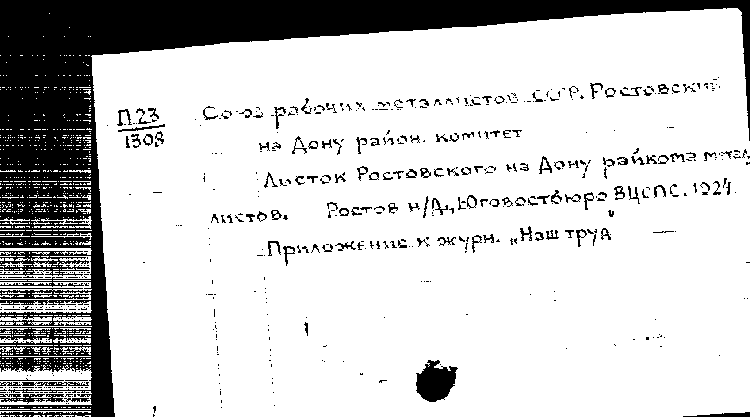 П.23
1308
Союз рабочих металлистов СССР. Ростовский
на Дону район. комитет
Листок Ростовского на Дону райкома метал
листов. Ростов н/Д., Юговостбюро ВЦСПС. 1924.
Приложение к журн. „Наш труд"